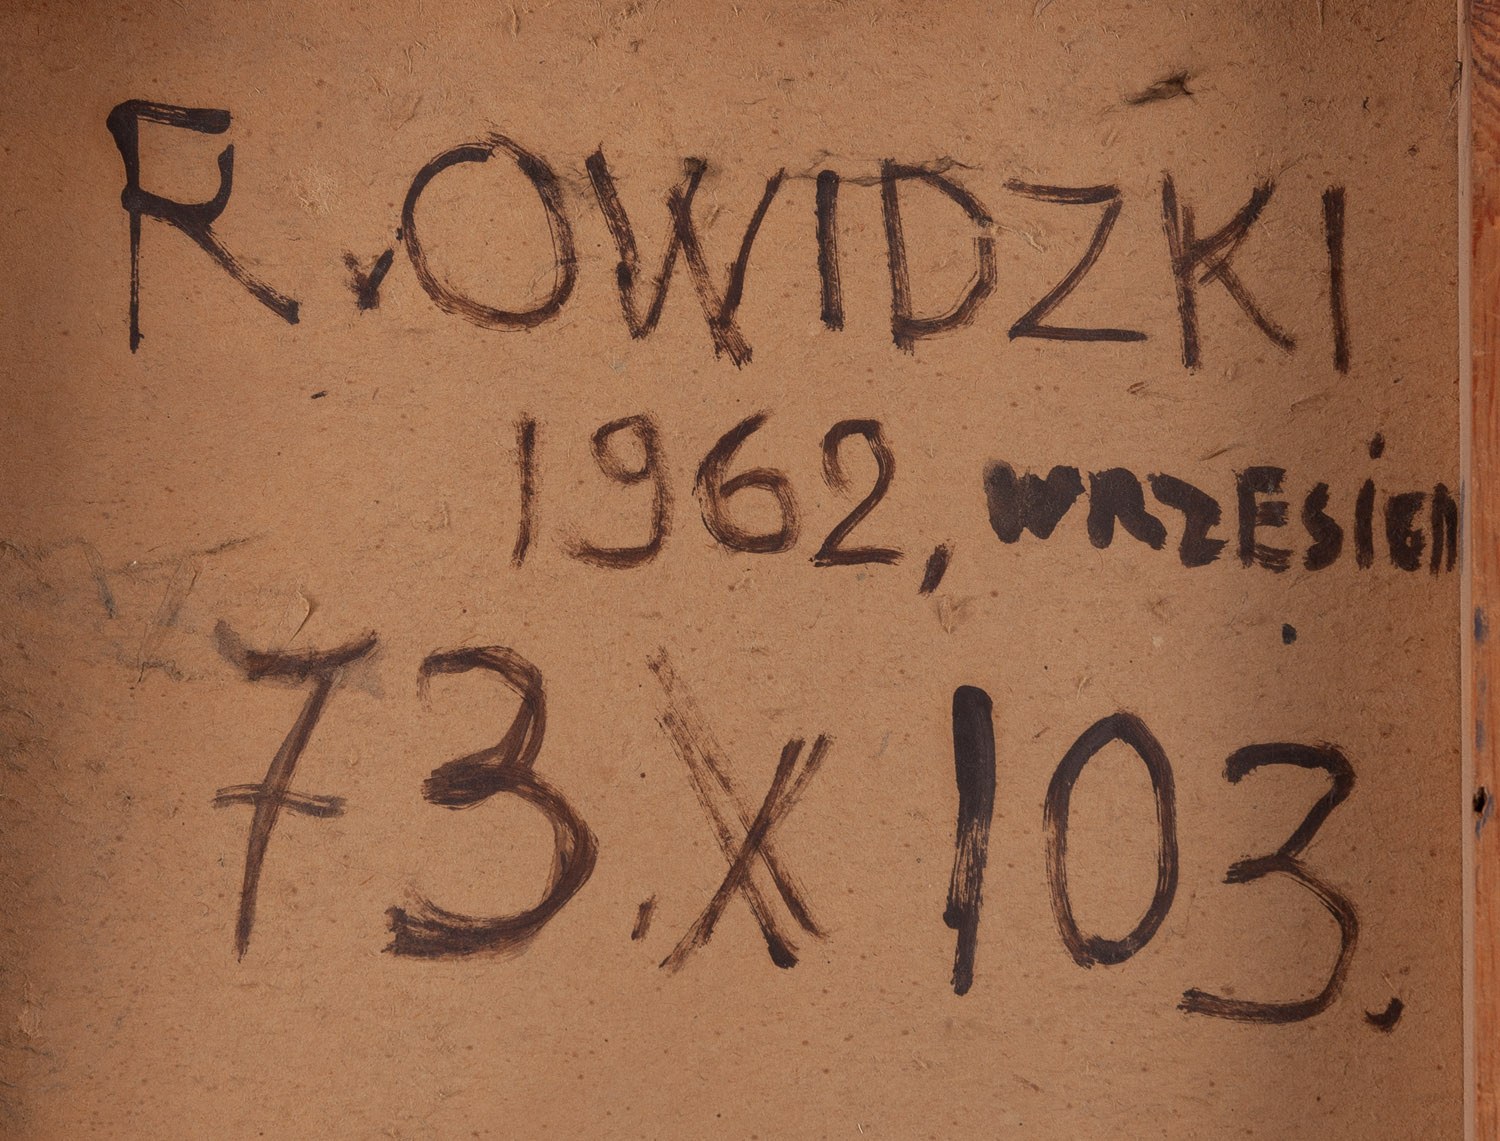 R. OWIDZKI
1962, WRZESIEŃ
73. X 103.